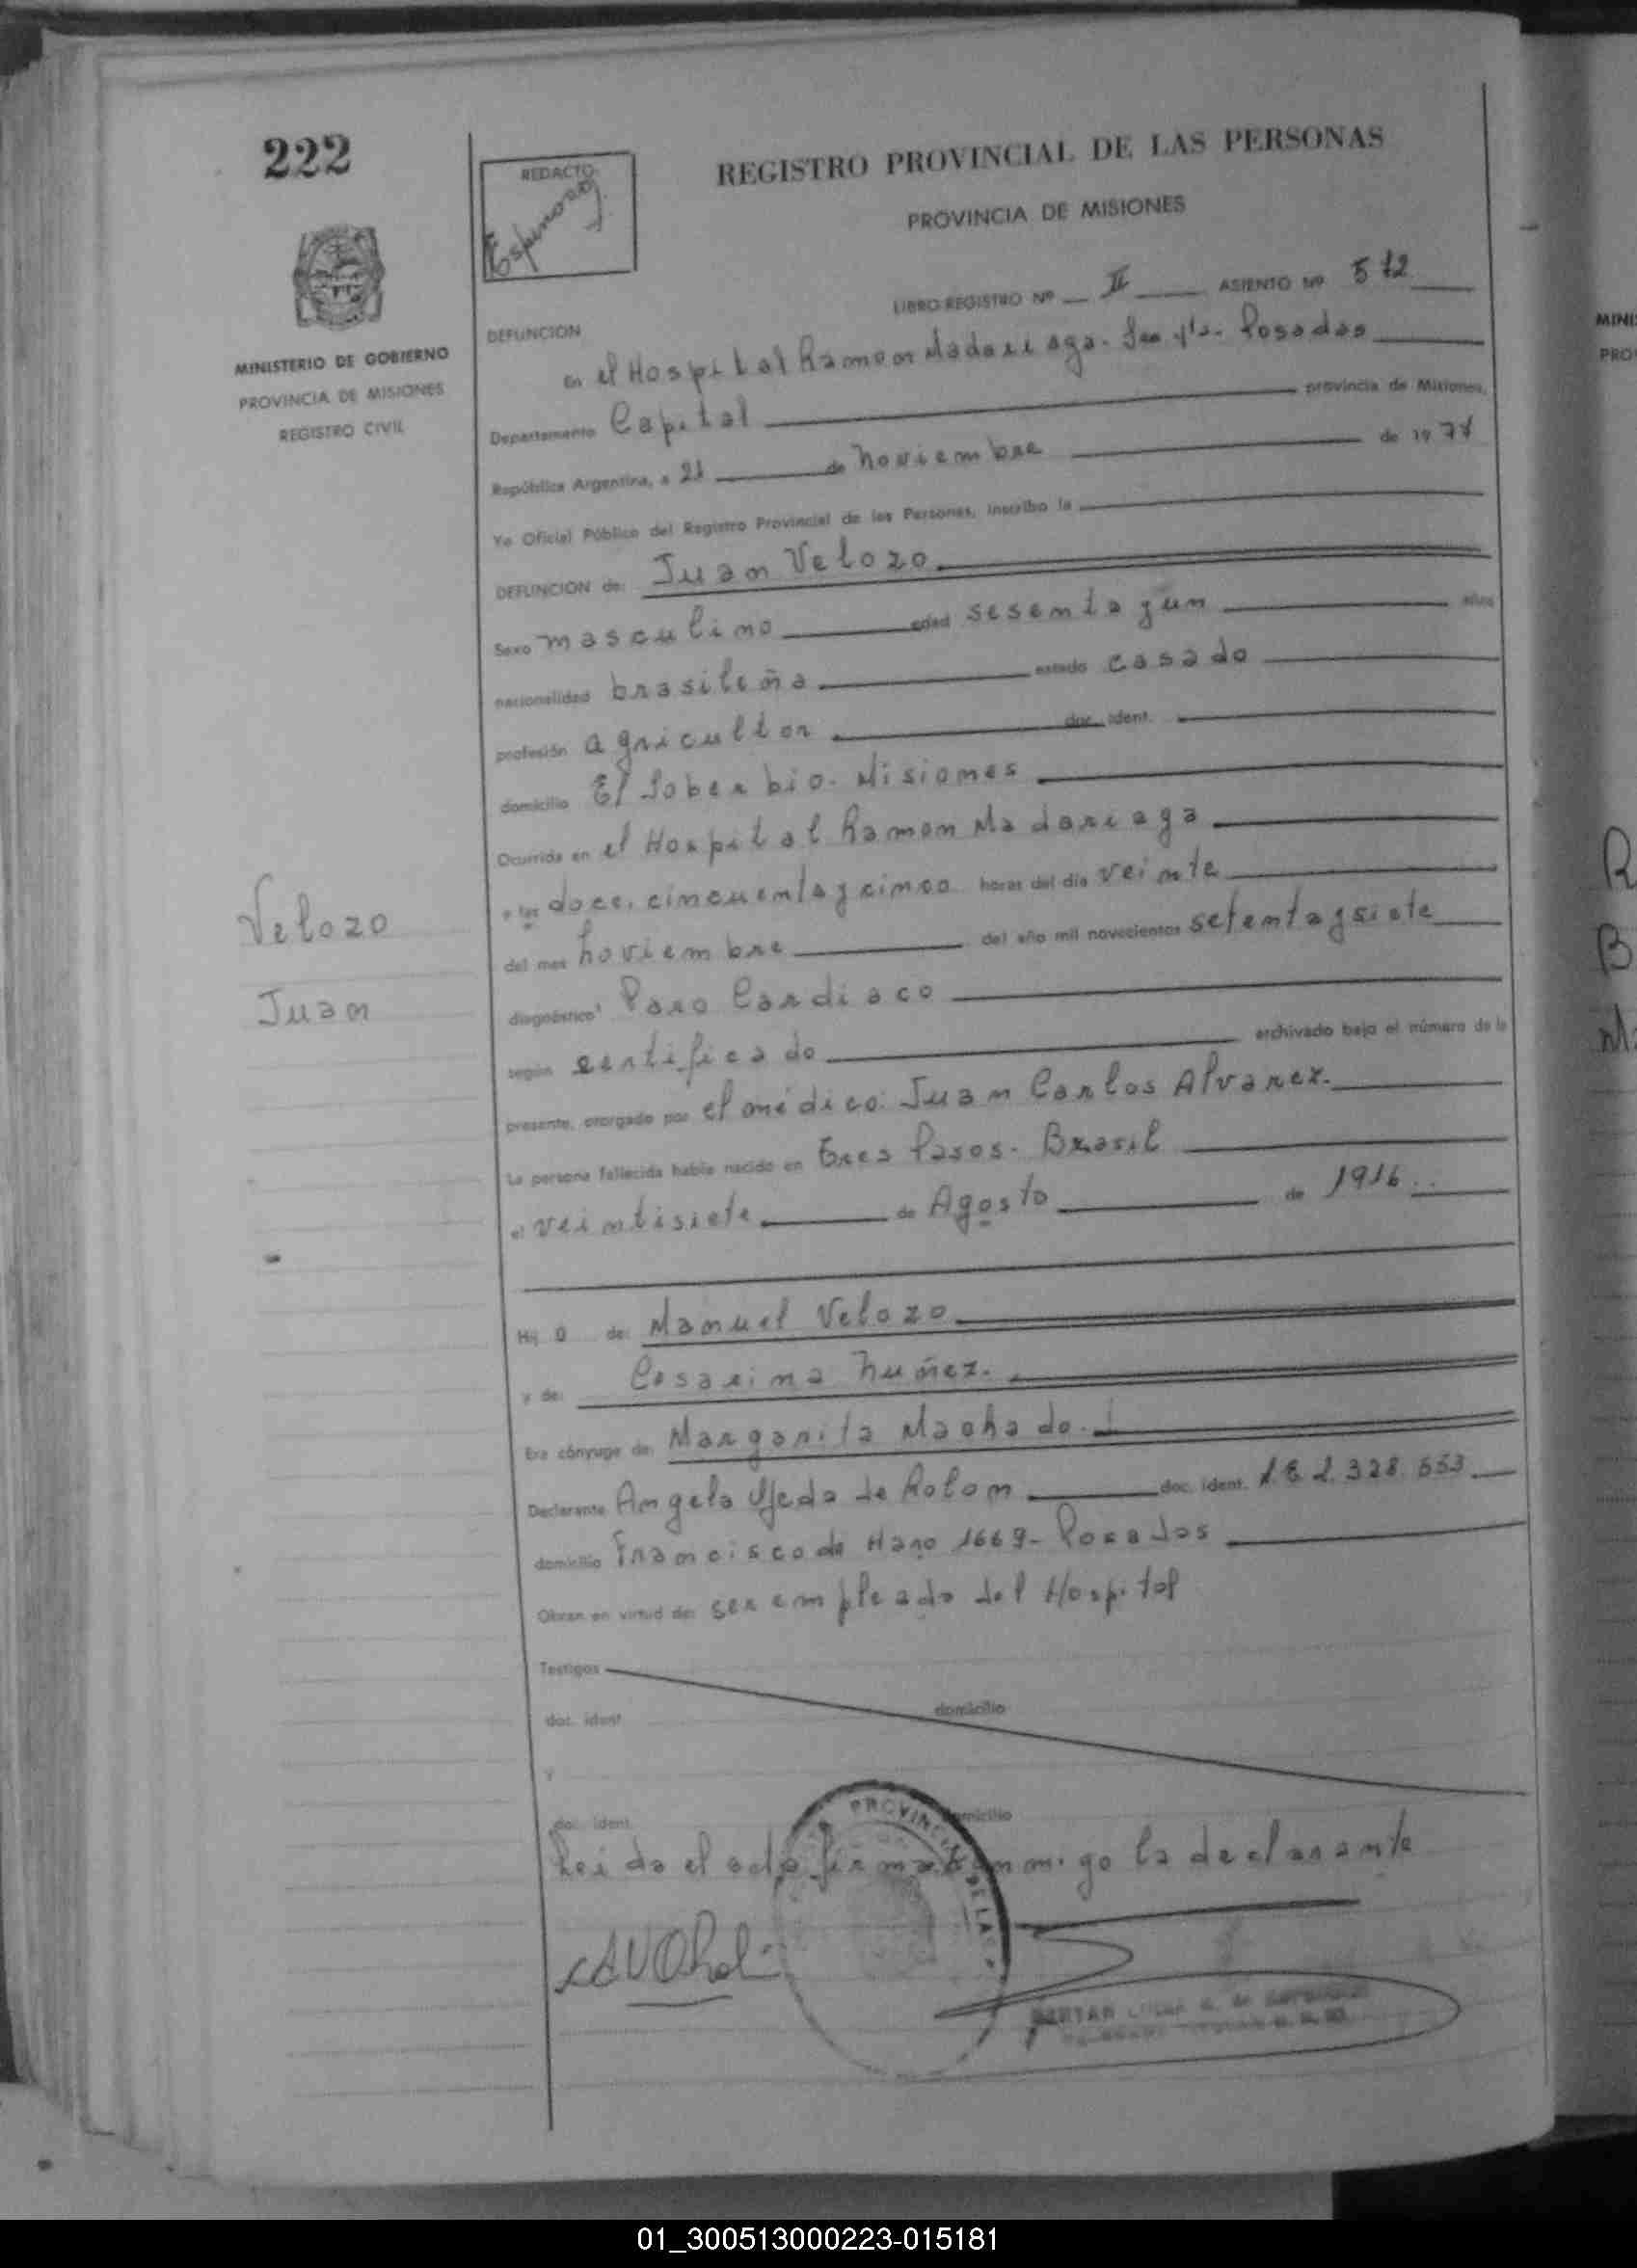 222
REDACTO
Espinoza
REGISTRO PROVINCIAL DE LAS PERSONAS
PROVINCIA DE MISIONES
MINISTERIO DE GOBIERNO
PROVINCIA DE MISIONES
REGISTRO CIVIL
LIBRO REGISTRO Nº II ASIENTO Nº 512
DEFUNCION
En el Hospital Ramon Madariaga. Posadas
Departamento Capital provincia de Misiones,
República Argentina, a 21 de noviembre de 1977
Yo Oficial Público del Registro Provincial de las Personas, inscribo la
DEFUNCION de: Juan Velozo
Sexo masculino edad sesenta y un años
nacionalidad brasileña estado casado
profesión agricultor doc. ident.
domicilio El Soberbio. Misiones
Ocurrida en el Hospital Ramon Madariaga
a las doce, cincuenta y cinco horas del día veinte
del mes noviembre del año mil novecientos setenta y siete
diagnóstico: Paro Cardiaco
según certificado archivado bajo el número de la
presente, otorgado por el médico: Juan Carlos Alvarez.
La persona fallecida había nacido en Tres Pasos. Brasil
el veintisiete de Agosto de 1916
Velozo
Juan
Hij o de: Manuel Velozo
y de: Cesarina Nuñez.
Era cónyuge de: Margarita Machado.
Declarante Angela Ojeda de Rolon doc. ident. 2.328.553
domicilio Francisco de Haro 1669- Posadas
Obran en virtud de: ser empleada del Hospital
Testigos
doc. ident domicilio
y
doc. ident. domicilio
Leido el acta firma conmigo la declarante
PROVINCIAL DE LAS P
01_300513000223-015181